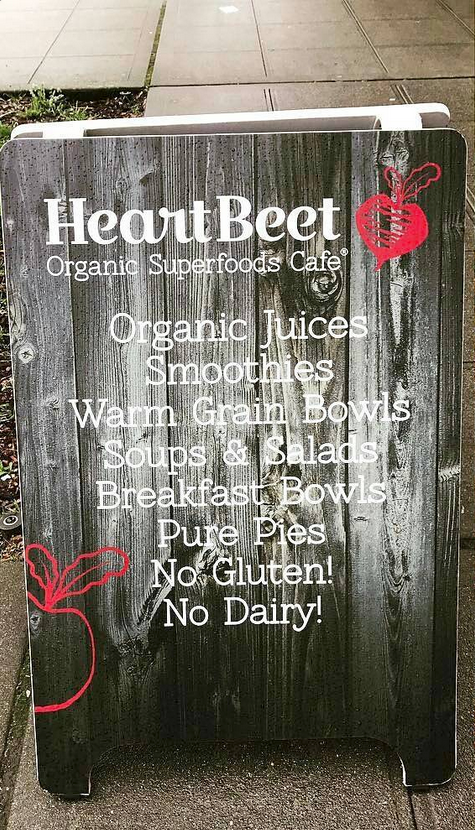 HeartBeet
Organic Superfoods Cafe®
Organic Juices
Smoothies
Warm Grain Bowls
Soups & Salads
Breakfast Bowls
Pure Pies
No Gluten!
No Dairy!